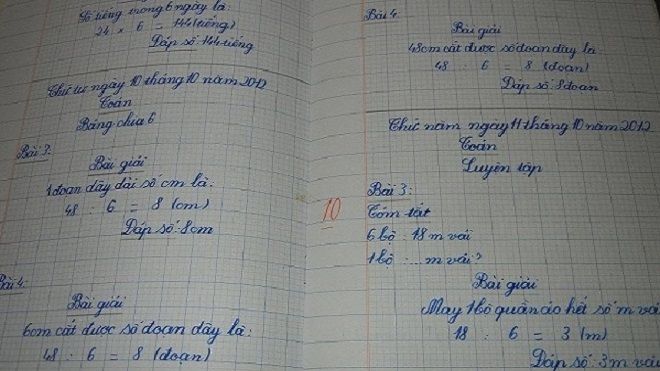 Số tiếng trong 6 ngày là:
24 x 6 = 144 (tiếng)
Đáp số: 144 tiếng
Thứ tư ngày 10 tháng 10 năm 2012
Toán
Bảng chia 6
Bài 3:
Bài giải
1 đoạn dây dài số cm là:
48 : 6 = 8 (cm)
Đáp số: 8cm
Bài 4:
Bài giải
6cm cắt được số đoạn dây là:
48 : 6 = 8 (đoạn)
10
Bài 4
Bài giải
48cm cắt được số đoạn dây là
48 : 6 = 8 (đoạn)
Đáp số 8 đoạn
Thứ năm ngày 11 tháng 10 năm 2012
Toán
Luyện tập
Bài 3:
Tóm tắt
6 bộ : 18 m vải
1 bộ : ... m vải?
Bài giải
May 1 bộ quần áo hết số m vải
18 : 6 = 3 (m)
Đáp số: 3 m vải